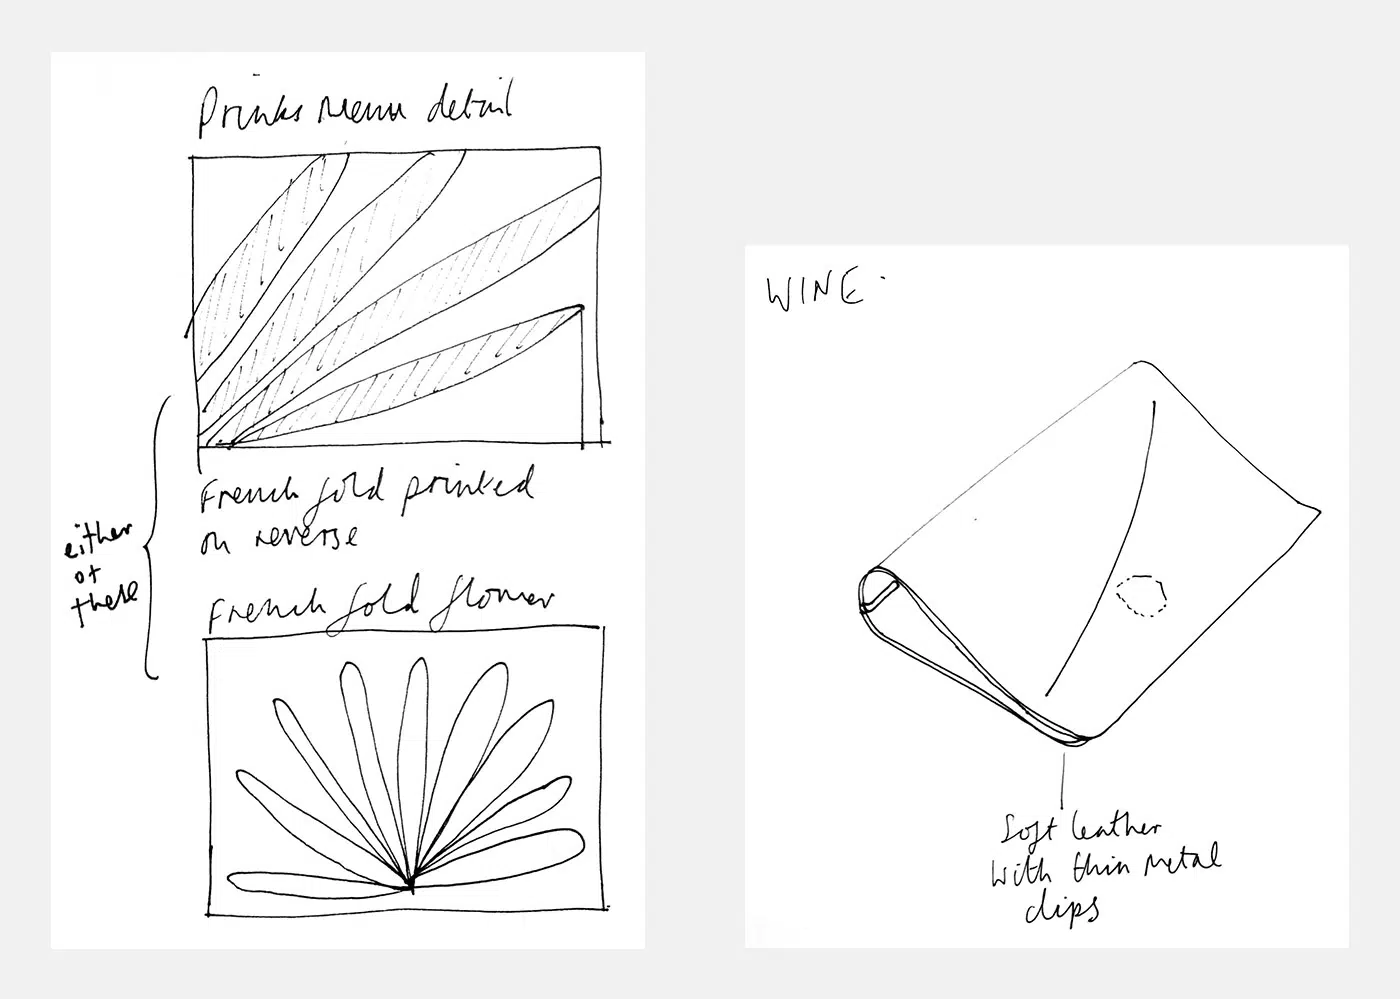 Drinks Menu detail
French fold printed
on reverse
either
of
these
French fold flower
WINE.
Soft leather
with thin metal
clips